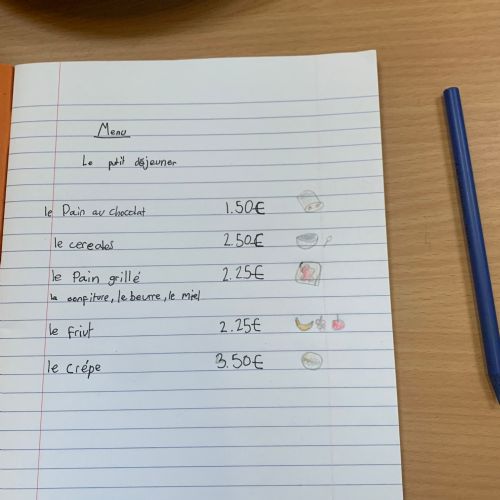 Menu
Le petit déjeuner
le Pain au chocolat 1.50€
le cereales 2.50€
le Pain grillé 2.25€
la confiture, le beurre, le miel
le friut 2.25€
le crépe 3.50€